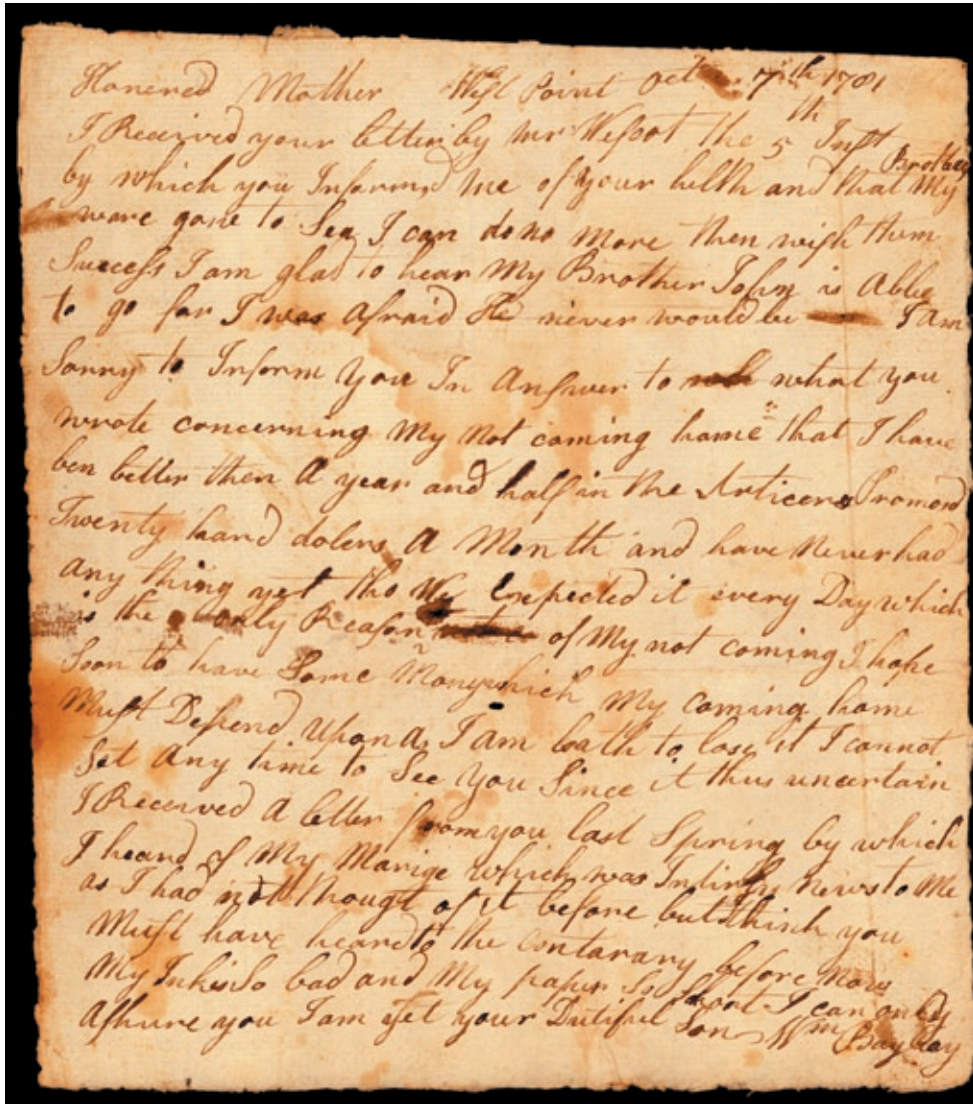 Honered Mother West Point Octr. 7th 1781
I Received your letter by Mr Wescot the 5th Inst
by which you Informd me of your helth and that My Brothers
ware gone to Sea I can do no More then wish them
Success I am glad to hear My Brother John is Able
to go for I was Afraid He never would be I am
Sorry to Inform you In Answer to what you
wrote concerning My Not coming home that I have
ben better then A year and half in the Articers Promisd
Twenty hard dolers A Month and have Never had
any thing yet tho We Expected it every Day which
is the only Reason of My not coming I hope
Soon to have Some Mony which My coming home
Must Depend Upon As I Am loath to lose it I cannot
Set Any time to See you Since it thus uncertain
I Received A letter from you last Spring by which
I heard of My Marige which was Intirly news to Me
as I had not thought of it before but think you
Must have heard to the contarary before Now
My Ink is So bad and My paper So Short I can only
Assure you I am yet your Dutiful Son Wm Bayley